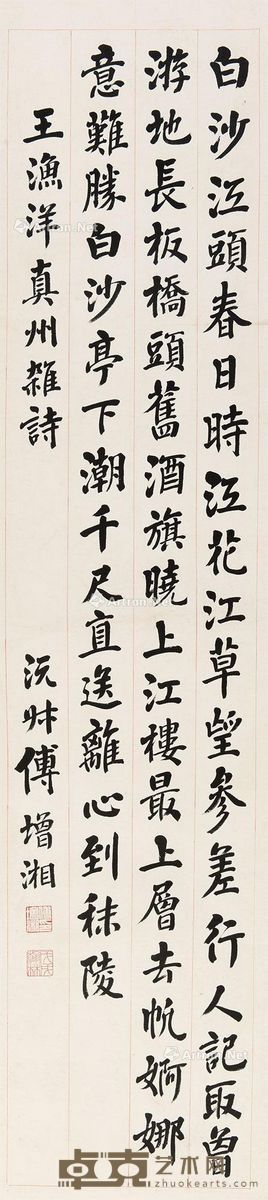 白沙江頭春日時江花江草望參差行人記取曾
游地長板橋頭舊酒旗曉上江樓最上層去帆婀娜
意難勝白沙亭下潮千尺直送離心到秣陵
王漁洋真州雜詩
沅叔傅增湘
Artron.Net
卓克艺术网
zhuokearts.com